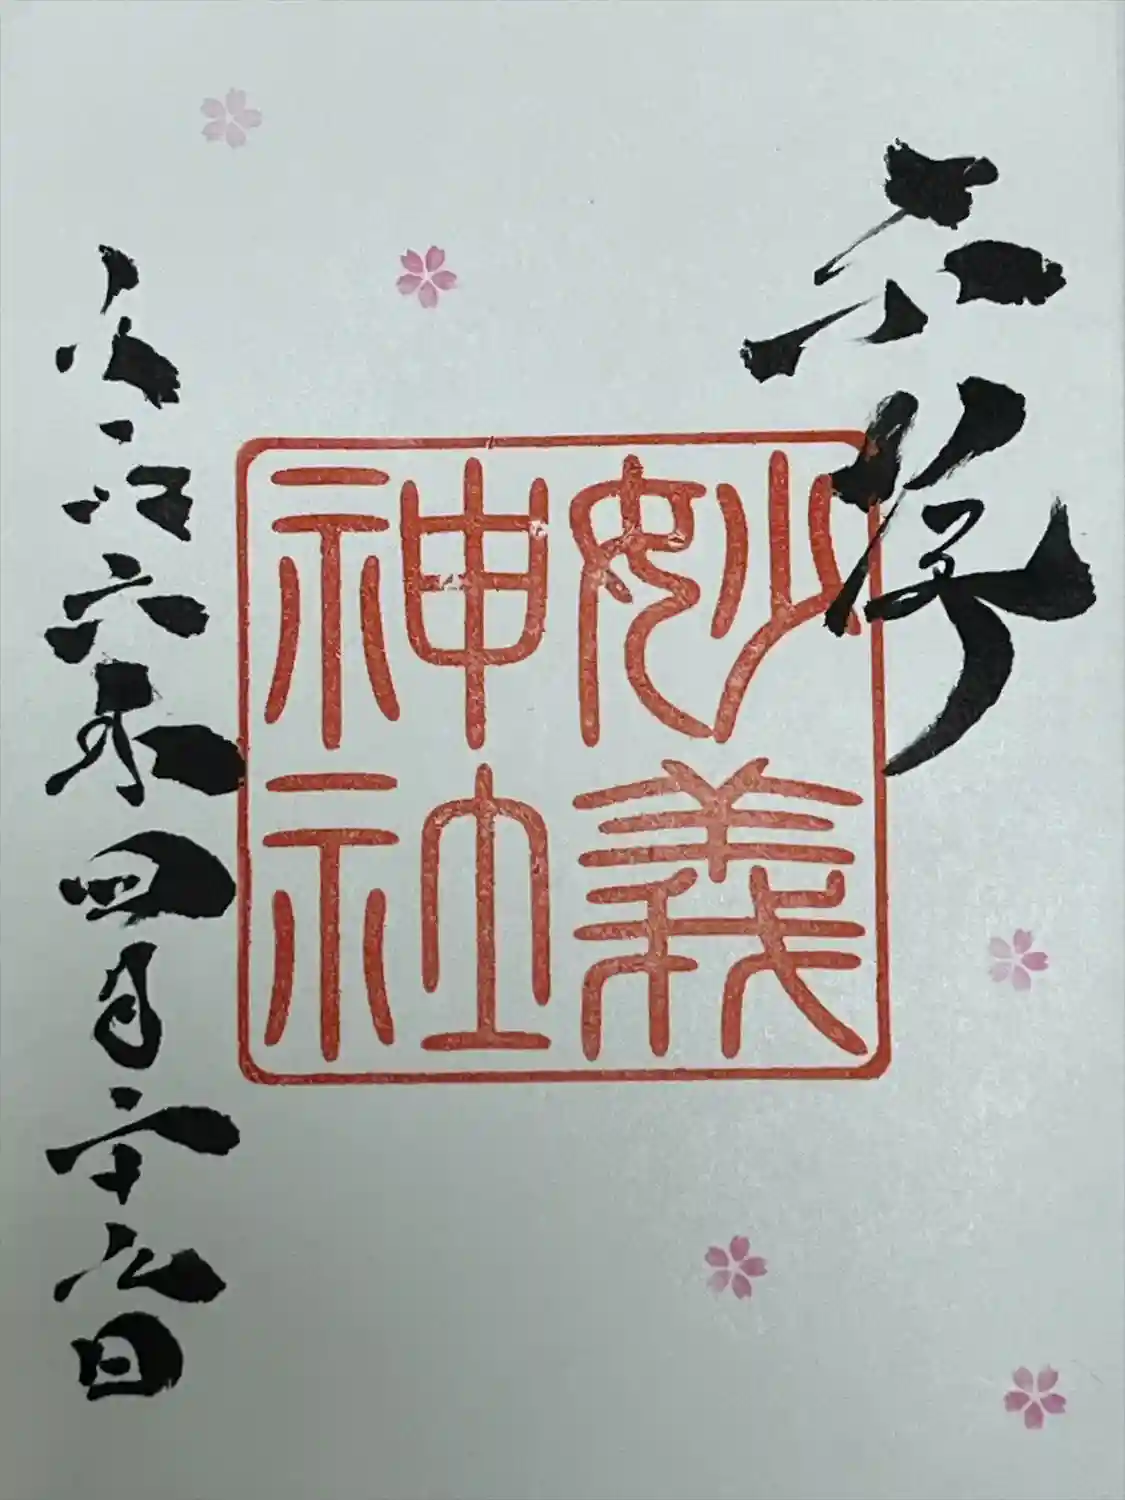 奉拝
妙義
神社
令和六年四月二十九日